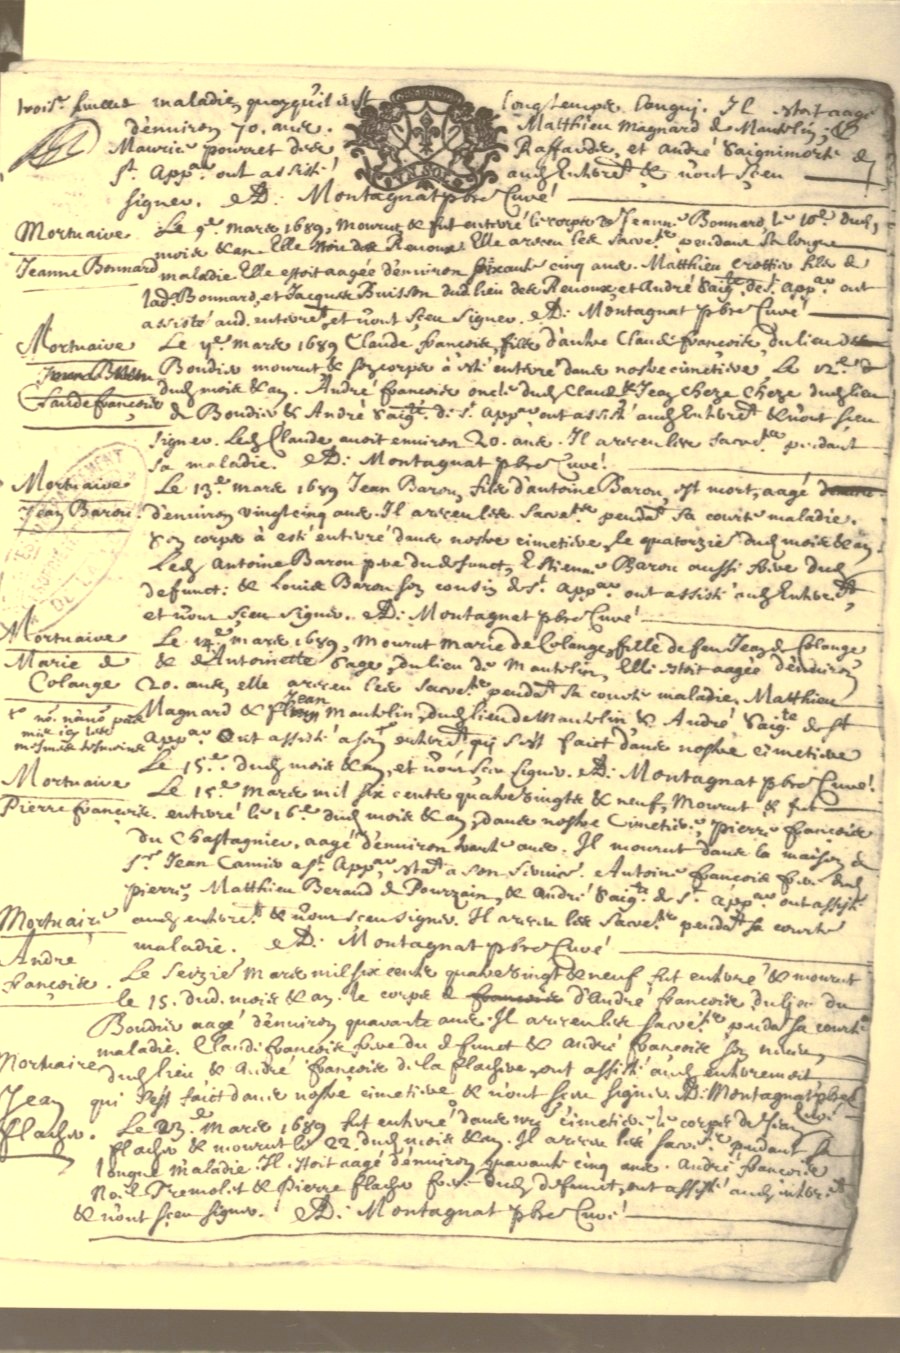 maladie, quoyqu'il longtemps langui. Il estoit aagé
d'environ 70. ans. Matthieu Magnard de Mautelin, &
Maurice pourret des Raffards, et André Saignimorte de
St. Appar ont assisté aud Enterrt & n'ont sceu
signer. Montagnat pbre Curé!
Mortuaire
Jeanne Bonnard
Le 9e mars 1689, mourut & fut enterré le corps de Jeanne Bonnard, le 10e dud,
mois & an Elle des Renoux Elle a receu les Sacrets pendant sa longue
maladie Elle estoit aagée d'environ soixante cinq ans. Matthieu crottier fils de
lad. Bonnard, et Jacques Buisson dud lieu des Renoux, et André Saigte de St. Appar ont
assisté aud. enterret, et n'ont sceu signer. Montagnat pbre Curé!
Mortuaire
Claude françoise
Le mars 1689 Claude françoise, fille d'autre Claude françoise, du lieu
Boudier mourut & son corps à esté enterré dans nostre cimetiere Le 12e
dud mois & an. André françoise oncle dud Claude & Jean Cheze dud lieu
de Boudier & André Saigte de St. Appar ont assisté aud Enterret & n'ont sceu
signer. Led Claude avoit environ 20. ans. Il a receu les Sacrets pendant
sa maladie. Montagnat pbre Curé!
Mortuaire
Jean Baron
Le 13e mars 1689 Jean Baron, fils d'antoine Baron, est mort, aagé
d'environ vingt cinq ans. Il a receu les Sacrets pendat sa courte maladie.
Son corps à esté enterré dans nostre cimetiere, le quatorzie dud mois & an.
Led Antoine Baron pere du defunct, Estienne Baron aussi frere dud
defunct: & Louis Baron son cousin de St. Appar ont assisté aud Enterret,
et n'ont sceu signer. Montagnat pbre Curé!
Mortuaire
Marie de
Colange
Le 14e mars 1689, mourut Marie de Colange, fille de feu Jean de Colange
& d'Antoinette Sage, du lieu de Mautelin, Elle estoit aagée d'environ
20. ans, elle a receu les Sacrets pendat sa courte maladie. Matthieu
Magnard & Jean Mautelin, dud lieu de Mautelin & André Saigte de St
Appar Ont assisté a son enterret qui s'est faict dans nostre cimetiere
Le 15e. dud mois & an, et n'ont sceu signer. Montagnat pbre Curé!
Mortuaire
Pierre françoise
Le 15e Mars mil six cents quatre vingts & neuf, Mourut & fut
enterré le 16e dud mois & an, dans nostre Cimetiere, Pierre françoise
du Chastagnier, aagé d'environ trante ans. Il mourut dans la maison de
Sr Jean Camier a St. Appar, estat a son service. Antoine françois frere dud
pierre, Matthieu Beraud de Pourrain, & André Saigte de St. Appar ont assisté
aud enterret & n'ont sceu signer. Il a receu les Sacrets pendat sa courte
maladie. Montagnat pbre Curé!
Mortuaire
André
françoise.
Le Seizie Mars mil six cents quatre vingt & neuf fut enterré & mourut
le 15. dud. mois & an. le corps de d'André françoise du lieu du
Boudier aagé d'environ quarante ans. Il a receu les sacrets pendat sa courte
maladie. Claude françoise frere du defunct & André françoise son neveu,
dud lieu & André françoise de la flachere, ont assisté aud enterrement
qui s'est faict dans nostre cimetiere & n'ont sceu signer. Montagnat pbre
Curé!
Mortuaire
Jean
flacher.
Le 23e Mars 1689 fut enterré dans nre cimetiere le corps de Jean
flacher & mourut le 22 dud mois & an. Il a receu les sacrets pendant sa
longue maladie. Il estoit aagé d'environ quarante cinq ans. André françoise
Noel Tremolet & Pierre flacher frere dud defunct, ont assisté aud enterret
& n'ont sceu signer. Montagnat pbre Curé!